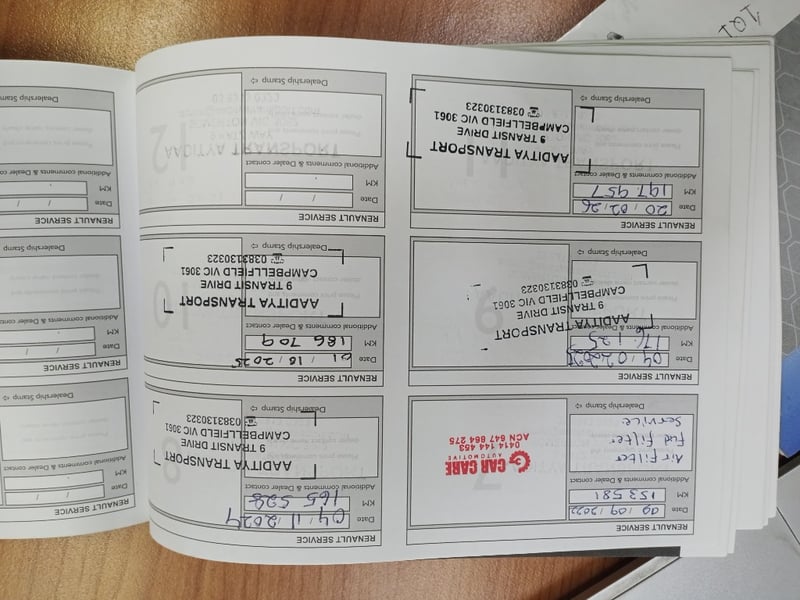 RENAULT SERVICE
Date 02 / 09 / 2022
KM 153581
Additional comments & Dealer contact
Air Filter
Fuel Filter
Service
Dealership Stamp ⇨
CAR CARE
AUTOMOTIVE
ACN 647 864 275
0414 144 453
RENAULT SERVICE
Date 04 / 11 / 2024
KM 165 528
Additional comments & Dealer contact
Dealership Stamp ⇨
8
AADITYA TRANSPORT
9 TRANSIT DRIVE
CAMPBELLFIELD VIC 3061
☎ 0383130323
RENAULT SERVICE
Date
KM
Additional comments & Dealer contact
Dealership Stamp ⇨
RENAULT SERVICE
Date 04 / 02 / 2025
KM 176 125
Additional comments & Dealer contact
Dealership Stamp ⇨
9
AADITYA TRANSPORT
9 TRANSIT DRIVE
CAMPBELLFIELD VIC 3061
☎ 0383130323
RENAULT SERVICE
Date 01 / 10 / 2025
KM 186 709
Additional comments & Dealer contact
Dealership Stamp ⇨
10
AADITYA TRANSPORT
9 TRANSIT DRIVE
CAMPBELLFIELD VIC 3061
☎ 0383130323
RENAULT SERVICE
Date
KM
Additional comments & Dealer contact
Dealership Stamp ⇨
RENAULT SERVICE
Date 20 / 02 / 26
KM 197 957
Additional comments & Dealer contact
Dealership Stamp ⇨
11
AADITYA TRANSPORT
9 TRANSIT DRIVE
CAMPBELLFIELD VIC 3061
☎ 0383130323
RENAULT SERVICE
Date
KM
Additional comments & Dealer contact
Dealership Stamp ⇨
12
RENAULT SERVICE
Date
KM
Additional comments & Dealer contact
Dealership Stamp ⇨